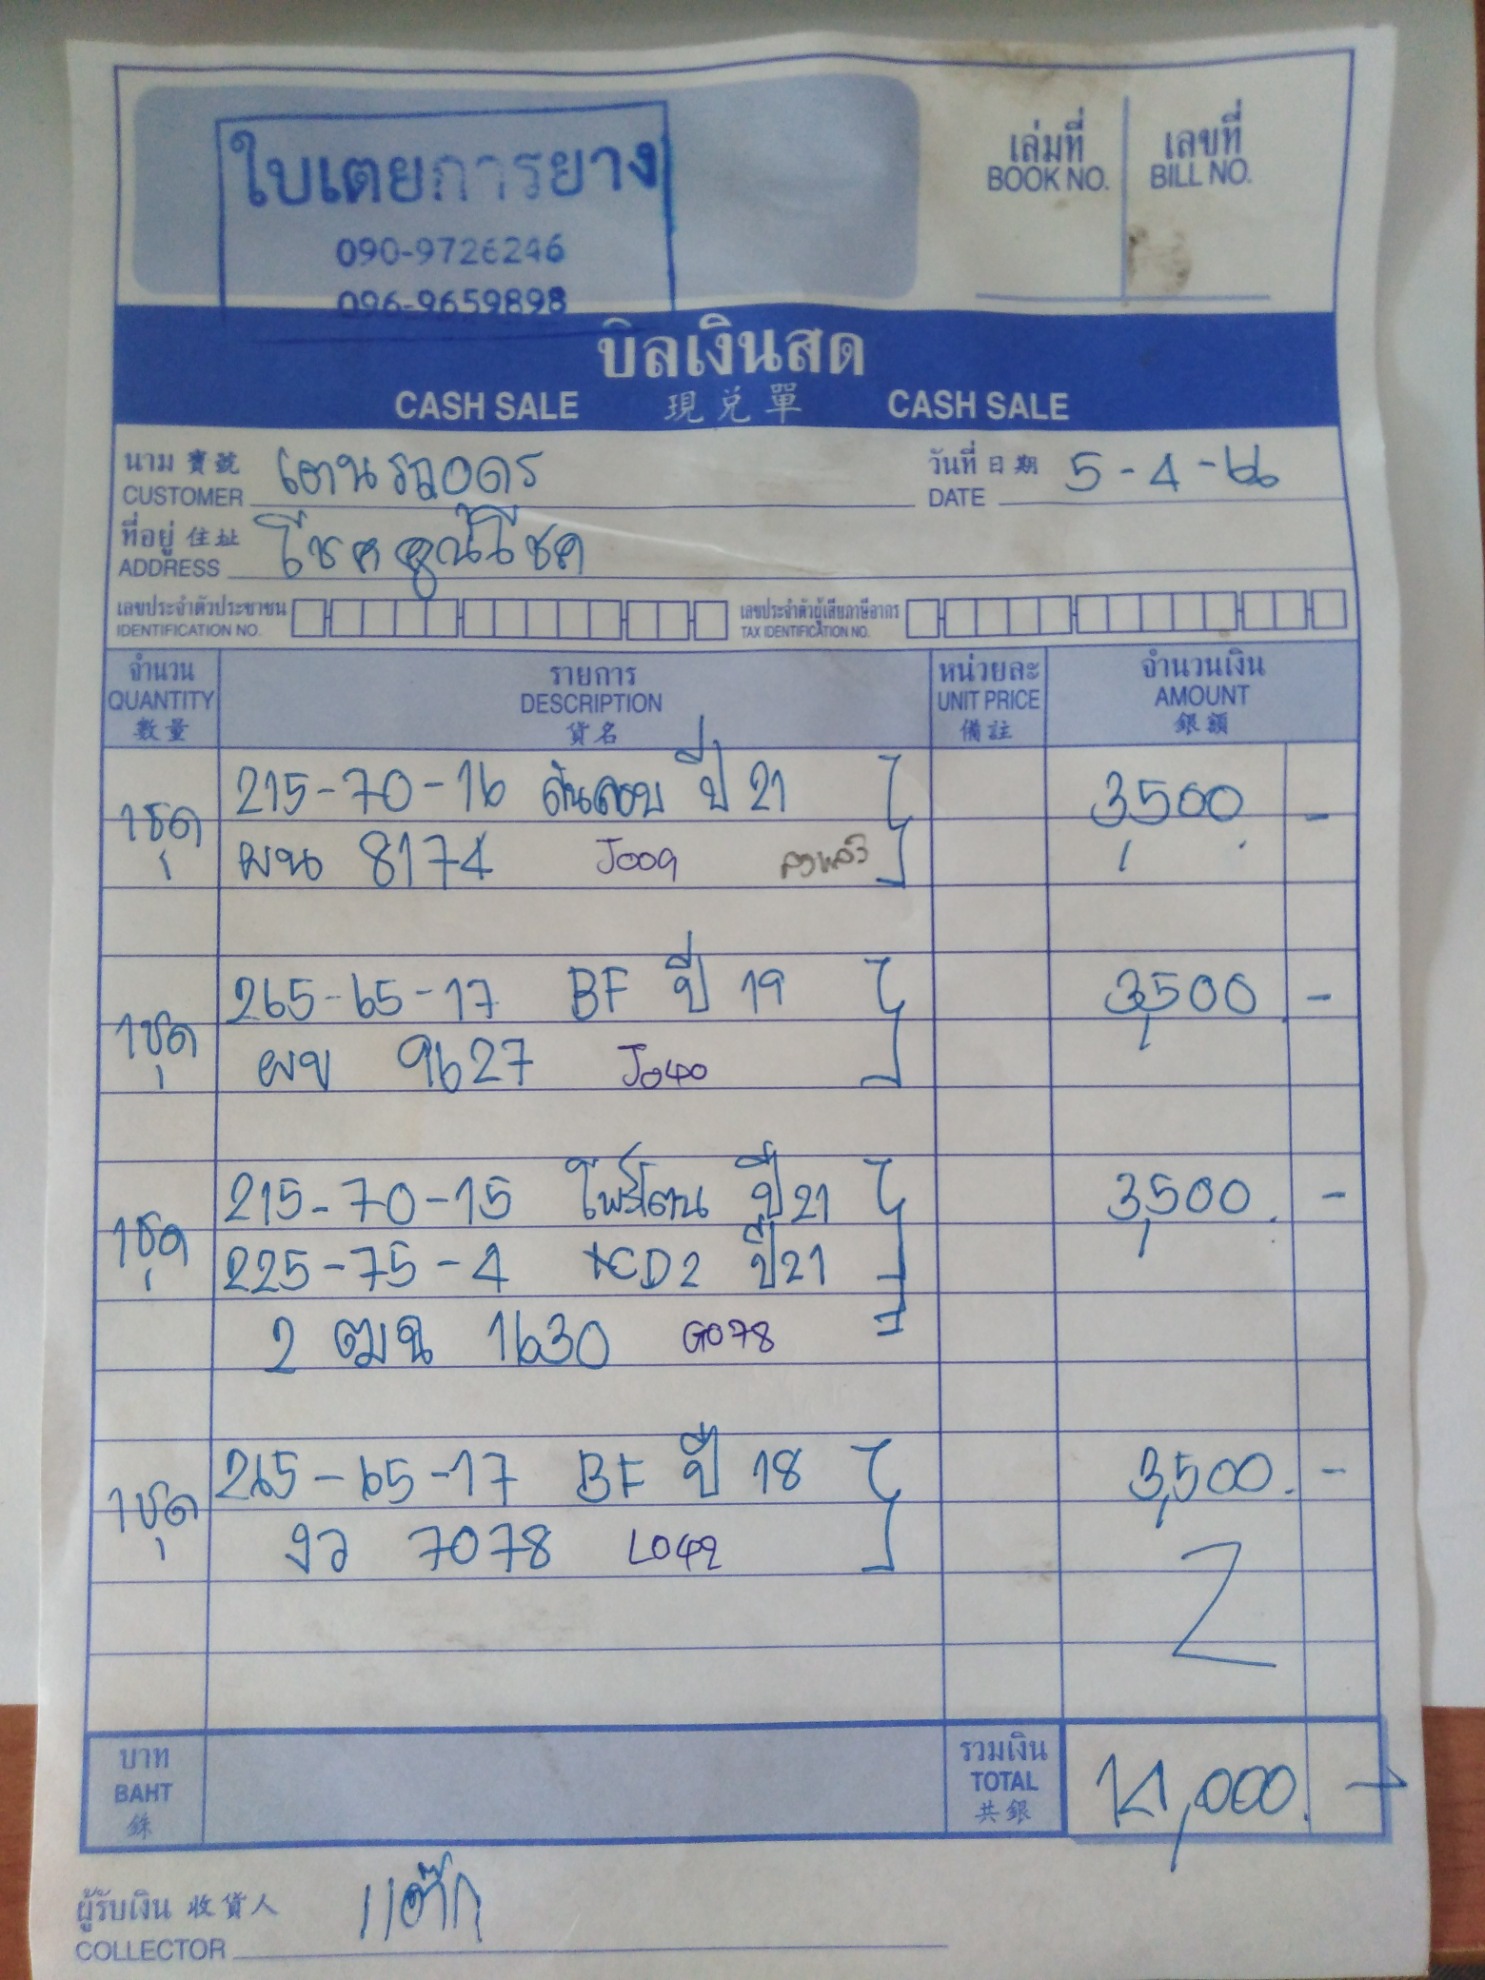 ใบเตยการยาง
090-9726246
096-9659898
เล่มที่ เลขที่
BOOK NO. BILL NO.
บิลเงินสด
CASH SALE 現兌單 CASH SALE
นาม 寶號 วันที่ 日期 5-4-66
CUSTOMER DATE
ที่อยู่ 住址 โชคคูณโชค
ADDRESS
เลขประจำตัวประชาชน เลขประจำตัวผู้เสียภาษีอากร
IDENTIFICATION NO. TAX IDENTIFICATION NO.
จำนวน รายการ หน่วยละ จำนวนเงิน
QUANTITY DESCRIPTION UNIT PRICE AMOUNT
數量 貨名 備註 銀額
1ชุด 215-70-16 ปี 21 3,500 -
ผน 8174 J009
1ชุด 265-65-17 BF ปี 19 3,500 -
ผข 9627 J040
1ชุด 215-70-15 ปี 21 3,500 -
225-75-4 ปี 21
2 ฒฉ 1630 G078
1ชุด 265-65-17 BF ปี 18 3,500 -
งว 7078 L042
บาท รวมเงิน
BAHT TOTAL 14,000 -
銖 共銀
ผู้รับเงิน 收貨人
COLLECTOR